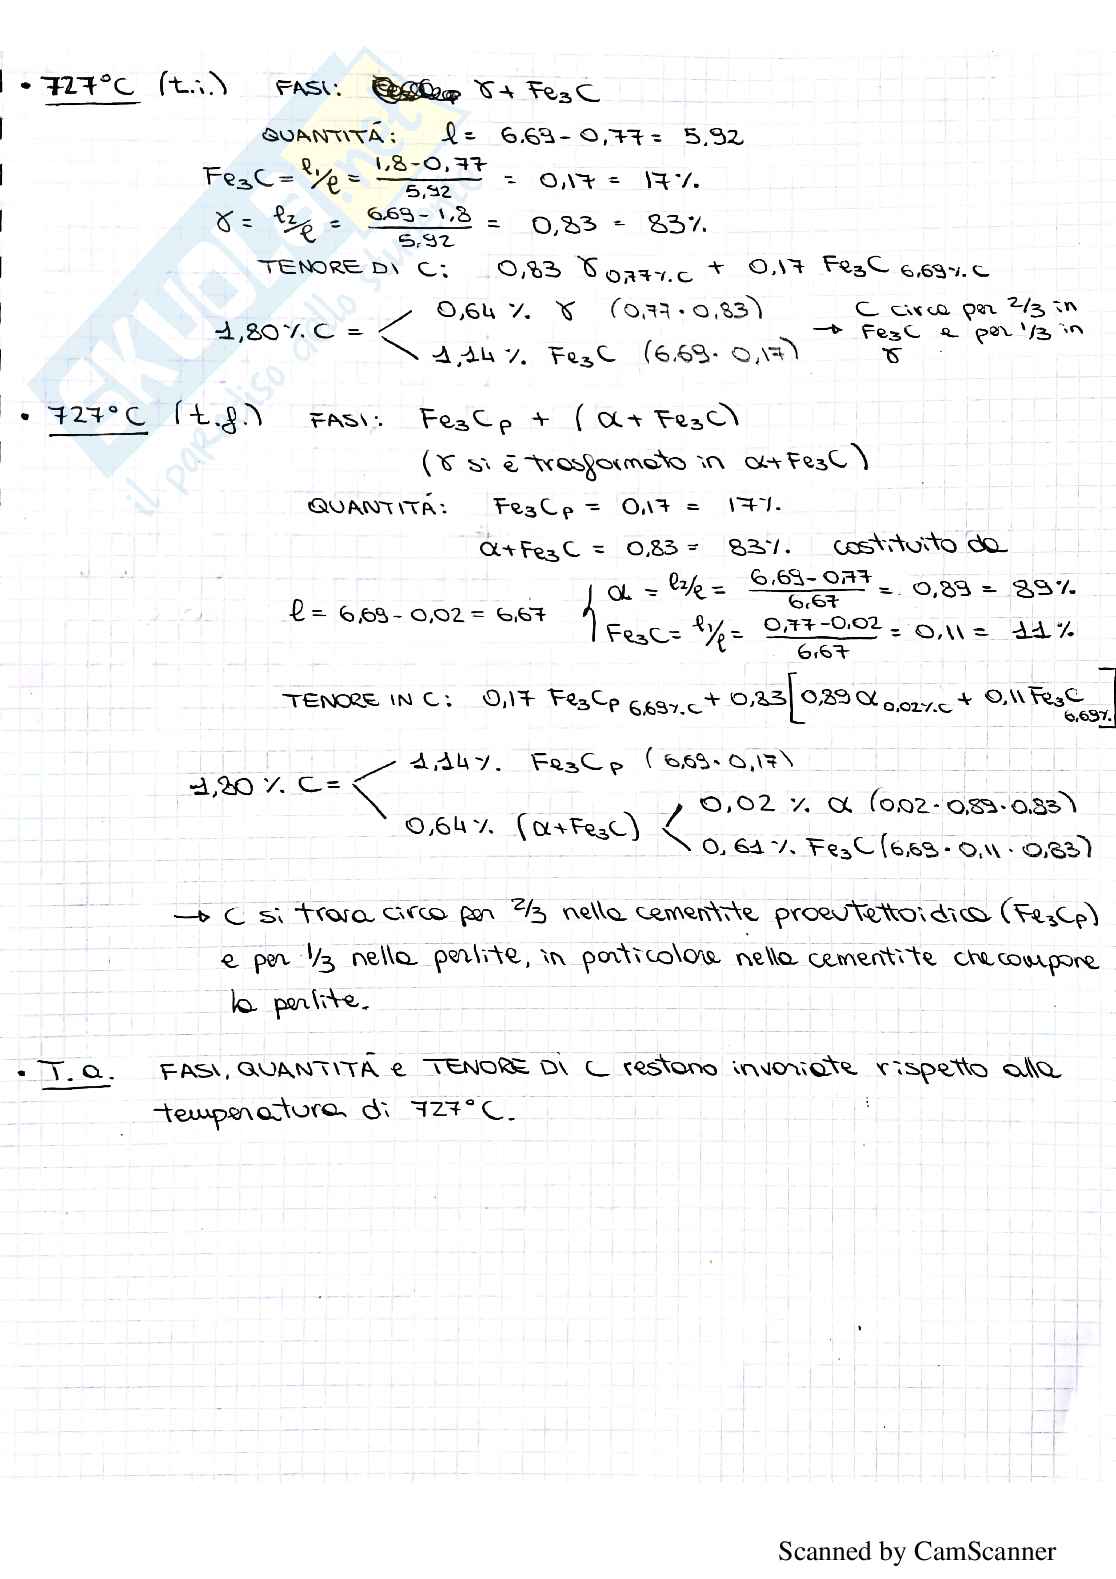 • 727°C (t.i.) FASI: γ + Fe₃C
QUANTITÁ: l = 6.69 - 0,77 = 5,92
Fe₃C = l₁/l = (1,8 - 0,77)/5,92 = 0,17 = 17%.
γ = l₂/l = (6.69 - 1,8)/5,92 = 0,83 = 83%.
TENORE DI C: 0,83 γ 0,77%.C + 0,17 Fe₃C 6,69%.C
0,64 % γ (0,77 · 0,83)
1,80%. C =
1,14 %. Fe₃C (6.69 · 0,17)
C circa per 2/3 in
→ Fe₃C e per 1/3 in
γ
• 727°C (t.f.) FASI: Fe₃Cp + (α + Fe₃C)
(γ si è trasformato in α+Fe₃C)
QUANTITÁ: Fe₃Cp = 0,17 = 17%.
α+Fe₃C = 0,83 = 83%. costituito da
l = 6,69 - 0,02 = 6,67
α = l₂/l = (6,69 - 0,77)/6,67 = 0,89 = 89%
Fe₃C = l₁/l = (0,77 - 0,02)/6,67 = 0,11 = 11%
TENORE IN C: 0,17 Fe₃Cp 6,69%.C + 0,83[0,89 α 0,02%.C + 0,11 Fe₃C 6,69%.]
1,14%. Fe₃Cp (6,69 · 0,17)
1,80 %. C =
0,64%. (α+Fe₃C)
0,02 % α (0,02 · 0,89 · 0,83)
0,61%. Fe₃C (6,69 · 0,11 · 0,83)
→ C si trova circa per 2/3 nella cementite proeutettoidica (Fe₃Cp)
e per 1/3 nella perlite, in particolare nella cementite che compone
la perlite.
• T.a. FASI, QUANTITÀ e TENORE DI C restano invariate rispetto alla
temperatura di 727°C.
SKUOLA.net
il paradiso dello studente
Scanned by CamScanner